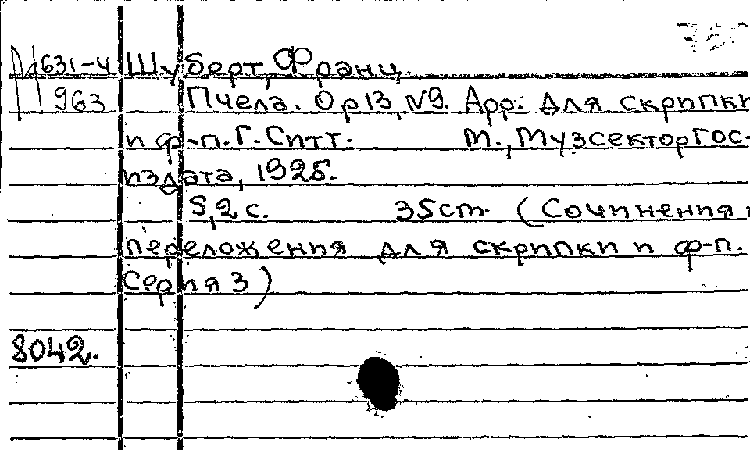 М631-4 Шуберт, Франц.
963 Пчела. Op13, N9. Арр. для скрипки
и ф-п. Г. Ситт. М., Музсектор Гос-
издата, 1926.
5,2 с. 35cm. (Сочинения и
переложения для скрипки и ф-п.
Серия 3)
8042.